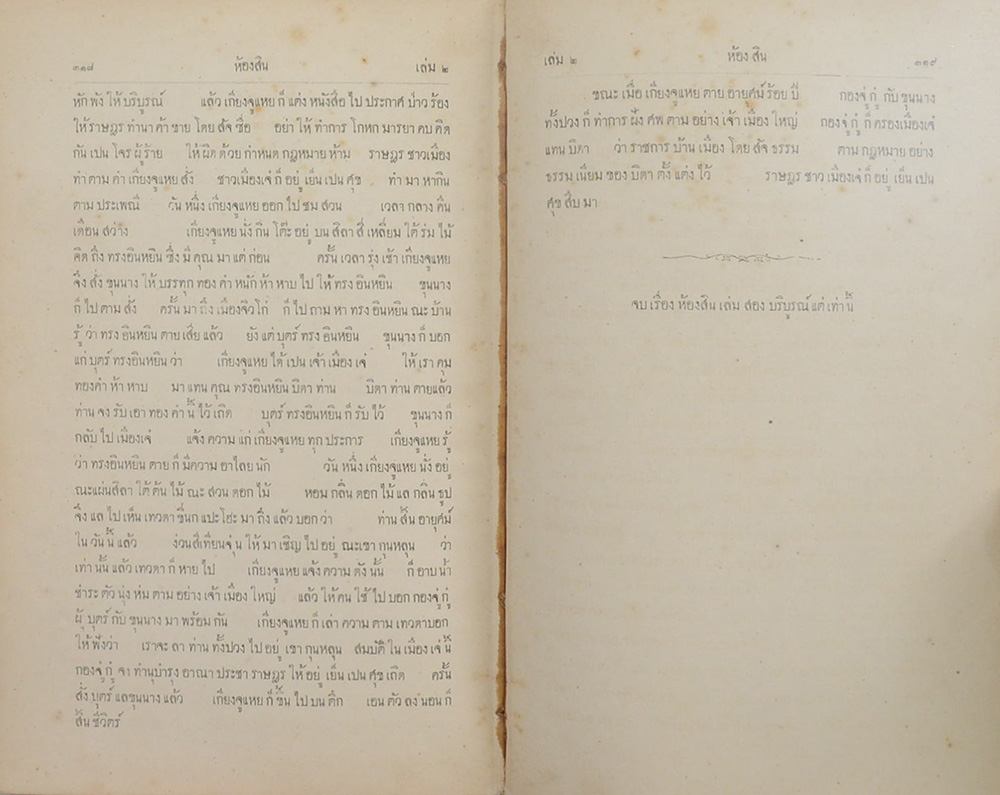 ๓๑๘ ห้องสิน เล่ม ๒
หัก พัง ให้ บริบูรณ์ แล้ว เกียงจูแหย ก็ แต่ง หนังสือ ไป ประกาศ ป่าว ร้อง
ให้ ราษฎร ทำนา ค้า ขาย โดย สัจ ซื่อ อย่า ให้ ทำการ โกหก มารยา คบ คิด
กัน เปน โจร ผู้ ร้าย ให้ ผิด ด้วย กำหนด กฎหมาย ห้าม ราษฎร ชาวเมือง
ทำ ตาม คำ เกียงจูแหย สั่ง ชาวเมืองเจ๋ ก็ อยู่ เย็น เปน ศุข ทำ มา หากิน
ตาม ประเพณี วัน หนึ่ง เกียงจูแหย ออก ไป ชม สวน เวลา กลาง คืน
เดือน สว่าง เกียงจูแหย นั่ง กิน โต๊ะ อยู่ บน สิลา สี่ เหลี่ยม ใต้ ร่ม ไม้
คิด ถึง ทรงอินหยิน ซึ่ง มี คุณ มา แต่ ก่อน ครั้น เวลา รุ่ง เช้า เกียงจูแหย
จึ่ง สั่ง ขุนนาง ให้ บรรทุก ทอง คำ หนัก ห้า หาบ ไป ให้ ทรง อินหยิน ขุนนาง
ก็ ไป ตาม สั่ง ครั้น มา ถึง เมืองจิวโก๋ ก็ ไป ถาม หา ทรง อินหยิน ณะ บ้าน
รู้ ว่า ทรง อินหยิน ตาย เสีย แล้ว ยัง แต่ บุตร์ ทรง อินหยิน ขุนนาง ก็ บอก
แก่ บุตร์ ทรงอินหยิน ว่า เกียงจูแหย ได้ เปน เจ้า เมือง เจ๋ ให้ เรา คุม
ทองคำ ห้า หาบ มา แทน คุณ ทรงอินหยิน บิดา ท่าน บิดา ท่าน ตายแล้ว
ท่าน จง รับ เอา ทอง คำ นี้ ไว้ เถิด บุตร์ ทรงอินหยิน ก็ รับ ไว้ ขุนนาง ก็
กลับ ไป เมืองเจ๋ แจ้ง ความ แก่ เกียงจูแหย ทุก ประการ เกียงจูแหย รู้
ว่า ทรงอินหยิน ตาย ก็ มีความ อาไลย นัก วัน หนึ่ง เกียงจูแหย นั่ง อยู่
ณะแผ่นสิลา ใต้ ต้น ไม้ ณะ สวน ดอก ไม้ หอม กลิ่น ดอก ไม้ แล กลิ่น ธูป
จึ่ง แล ไป เห็น เทวดา ขี่นก แปะโฮะ มา ถึง แล้ว บอก ว่า ท่าน สิ้น อายุศม์
ใน วัน นี้ แล้ว ง่วนสีเทียนจุ๋น ให้ มา เชิญ ไป อยู่ ณะเขา กุนหลุน ว่า
เท่า นั้น แล้ว เทวดา ก็ หาย ไป เกียงจูแหย แจ้ง ความ ดัง นั้น ก็ อาบ น้ำ
ชำระ ตัว นุ่ง ห่ม ตาม อย่าง เจ้า เมือง ใหญ่ แล้ว ให้ คน ใช้ ไป บอก กองจู่ กู๋
ผู้ บุตร์ กับ ขุนนาง มา พร้อม กัน เกียงจูแหย ก็ เล่า ความ ตาม เทวดาบอก
ให้ ฟังว่า เราจะ ลา ท่าน ทั้งปวง ไป อยู่ เขา กุนหลุน สมบัติ ใน เมือง เจ๋ นี้
กองจู่ กู๋ จง ทำนุบำรุง อาณา ประชา ราษฎร ให้ อยู่ เย็น เปน ศุข เถิด ครั้น
สั่ง บุตร์ แลขุนนาง แล้ว เกียงจูแหย ก็ ขึ้น ไป บน ตึก เอน ตัว ลง นอน ก็
สิ้น ชีวิตร์
เล่ม ๒ ห้อง สิน ๓๑๙
ขณะ เมื่อ เกียงจูแหย ตาย อายุศม์ ร้อย ปี กองจู่ กู๋ กับ ขุนนาง
ทั้งปวง ก็ ทำการ ฝัง ศพ ตาม อย่าง เจ้า เมือง ใหญ่ กองจู่ กู๋ ก็ ครองเมืองเจ๋
แทน บิดา ว่า ราชการ บ้าน เมือง โดย สัจ ธรรม ตาม กฎหมาย อย่าง
ธรรม เนียม ของ บิดา ตั้ง แต่ง ไว้ ราษฎร ชาว เมืองเจ๋ ก็ อยู่ เย็น เปน
ศุข สืบ มา
จบ เรื่อง ห้องสิน เล่ม สอง บริบูรณ์ แต่ เท่า นี้